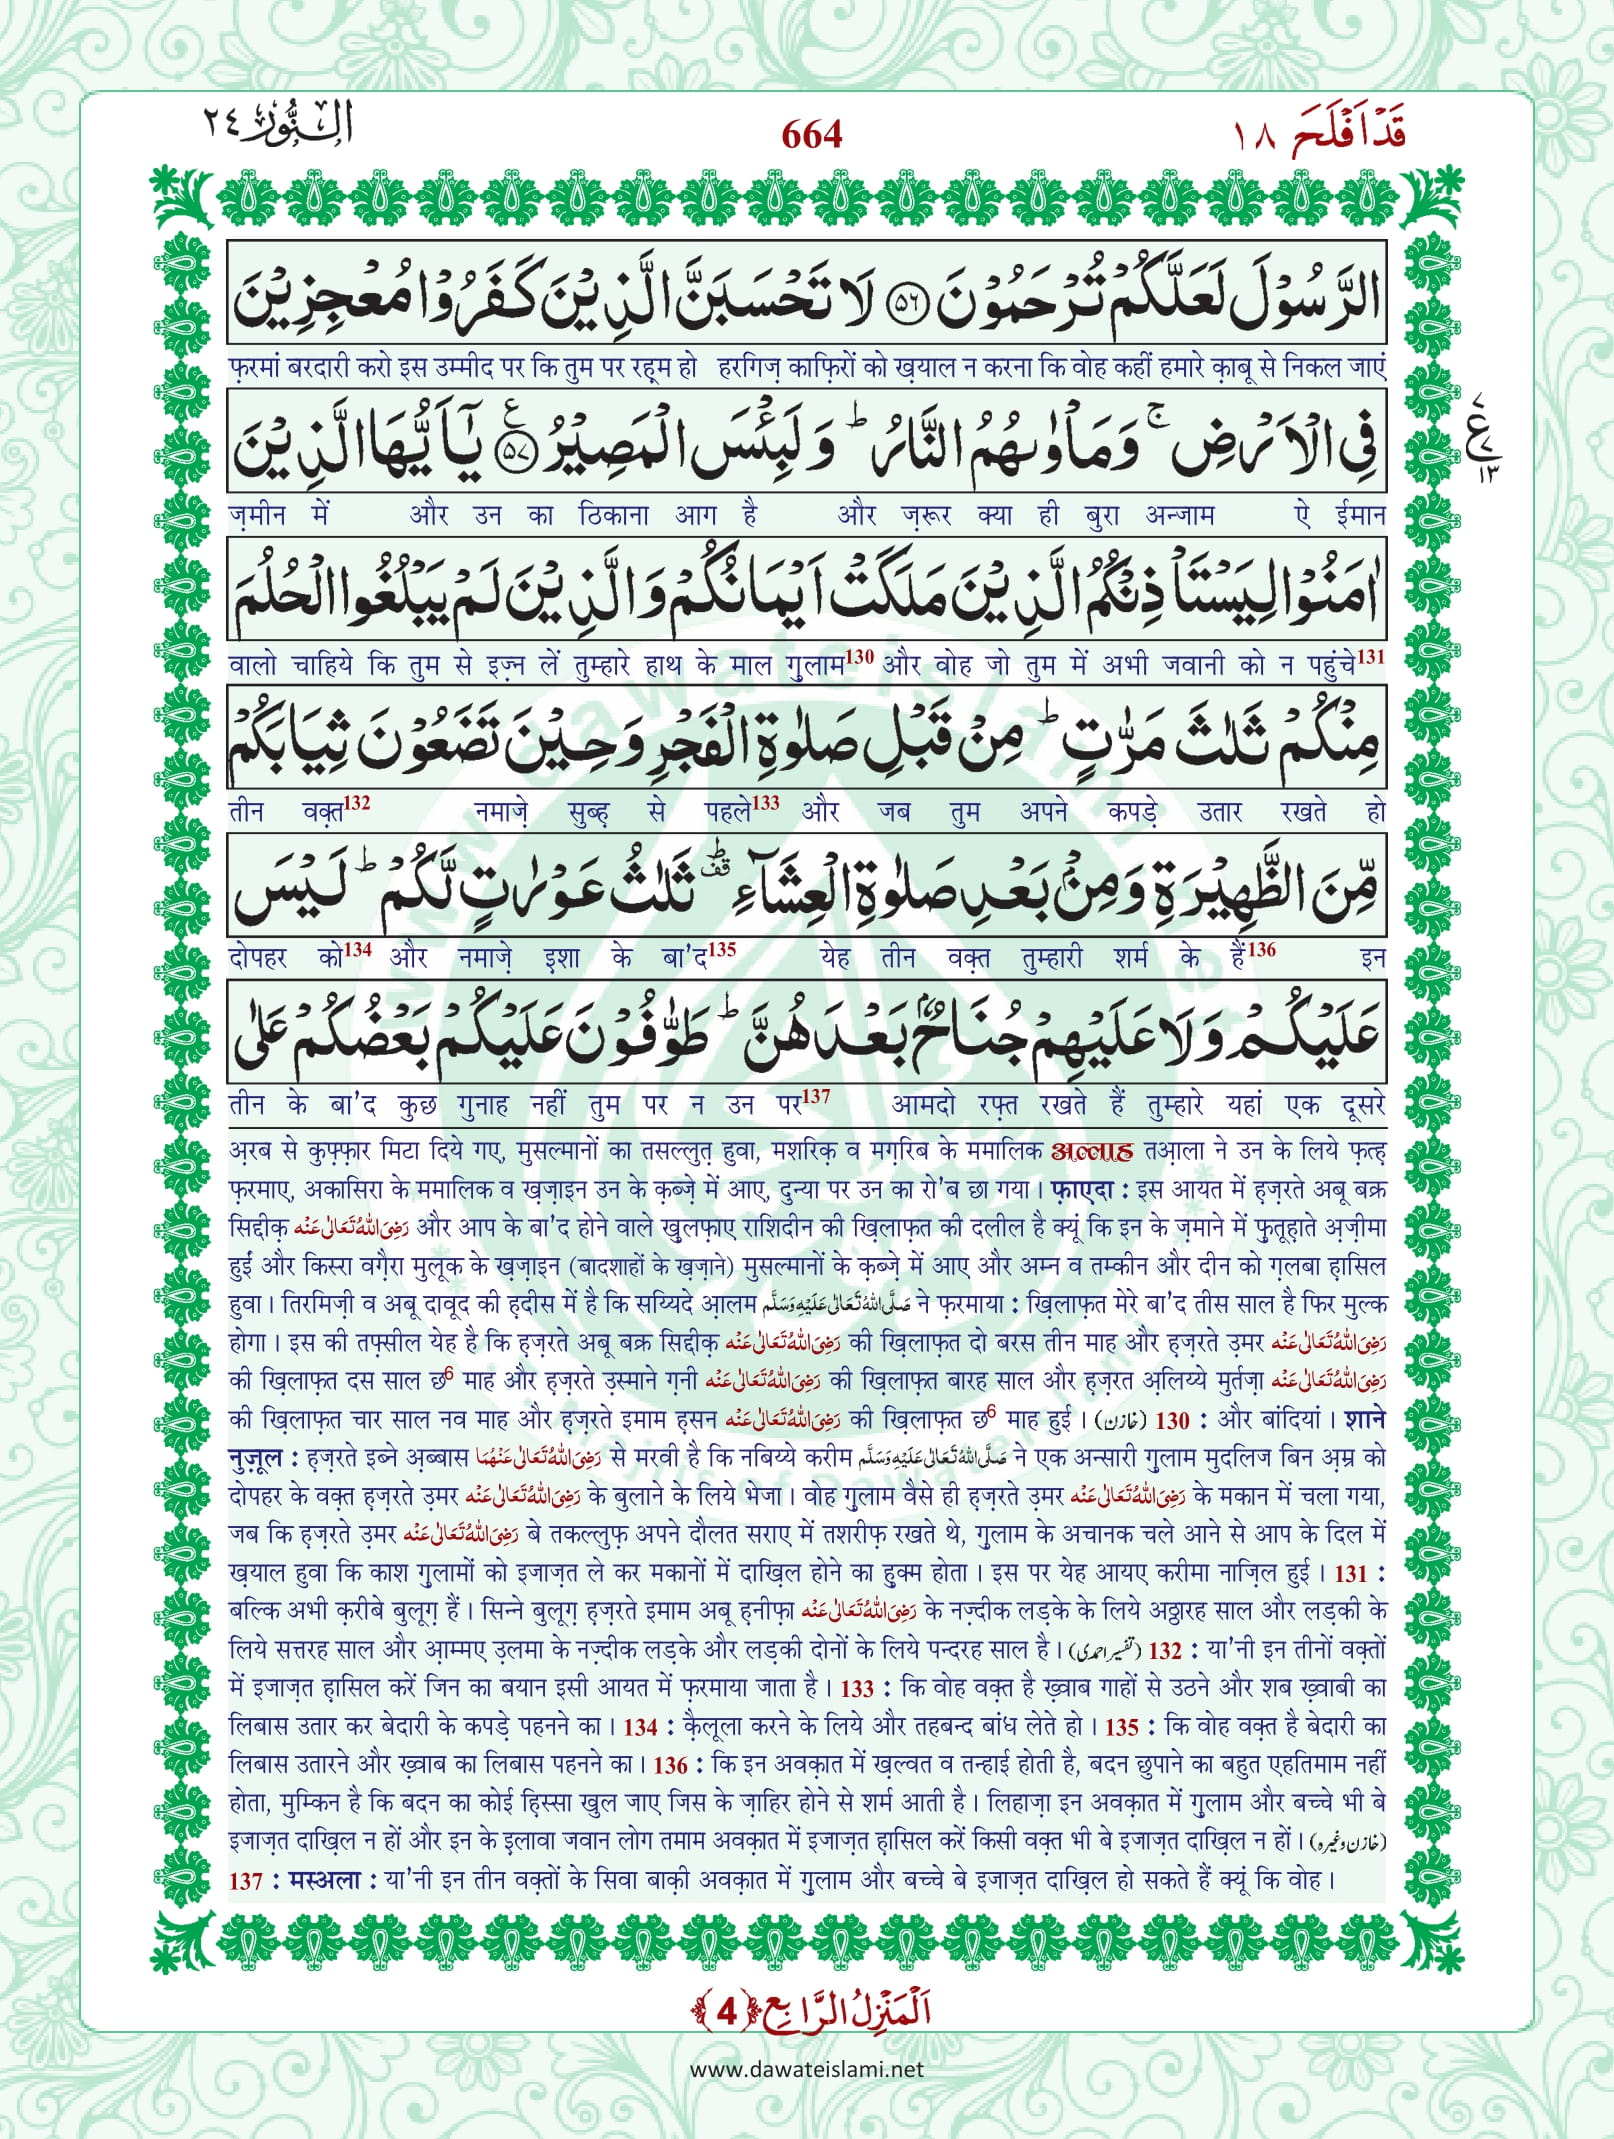 قَدْ اَفْلَحَ ١٨ 664 اَلنُّوْر ٢٤
الرَّسُوْلَ لَعَلَّكُمْ تُرْحَمُوْنَ ﴿٥٦﴾ لَا تَحْسَبَنَّ الَّذِيْنَ كَفَرُوْا مُعْجِزِيْنَ
फ़रमां बरदारी करो इस उम्मीद पर कि तुम पर रह़्म हो हरगिज़ काफ़िरों को ख़याल न करना कि वोह कहीं हमारे क़ाबू से निकल जाएं
فِي الْاَرْضِ ۚ وَمَاْوٰىهُمُ النَّارُ ؕ وَلَبِئْسَ الْمَصِيْرُ ﴿٥٧﴾ ع يٰۤاَيُّهَا الَّذِيْنَ
ع ٧ ١٣
ज़मीन में और उन का ठिकाना आग है और ज़रूर क्या ही बुरा अन्जाम ऐ ईमान
اٰمَنُوْا لِيَسْتَاْذِنْكُمُ الَّذِيْنَ مَلَكَتْ اَيْمَانُكُمْ وَالَّذِيْنَ لَمْ يَبْلُغُوا الْحُلُمَ
वालो चाहिये कि तुम से इज़्न लें तुम्हारे हाथ के माल ग़ुलाम130 और वोह जो तुम में अभी जवानी को न पहुंचे131
مِنْكُمْ ثَلٰثَ مَرّٰتٍ ؕ مِنْ قَبْلِ صَلٰوةِ الْفَجْرِ وَحِيْنَ تَضَعُوْنَ ثِيَابَكُمْ
तीन वक़्त132 नमाज़े सुब्ह़ से पहले133 और जब तुम अपने कपड़े उतार रखते हो
مِّنَ الظَّهِيْرَةِ وَمِنْۢ بَعْدِ صَلٰوةِ الْعِشَآءِ ؕقف ثَلٰثُ عَوْرٰتٍ لَّكُمْ ؕ لَيْسَ
दोपहर को134 और नमाज़े इशा के बा'द135 येह तीन वक़्त तुम्हारी शर्म के हैं136 इन
عَلَيْكُمْ وَلَا عَلَيْهِمْ جُنَاحٌۢ بَعْدَهُنَّ ؕ طَوّٰفُوْنَ عَلَيْكُمْ بَعْضُكُمْ عَلٰى
तीन के बा'द कुछ गुनाह नहीं तुम पर न उन पर137 आमदो रफ़्त रखते हैं तुम्हारे यहां एक दूसरे
अ़रब से कुफ़्फ़ार मिटा दिये गए, मुसल्मानों का तसल्लुत़ हुवा, मशरिक़ व मग़रिब के ममालिक अल्लाह तआ़ला ने उन के लिये फ़त्ह़
फ़रमाए, अकासिरा के ममालिक व ख़ज़ाइन उन के क़ब्ज़े में आए, दुन्या पर उन का रो'ब छा गया। फ़ाएदा : इस आयत में ह़ज़रते अबू बक्र
सिद्दीक़ رَضِيَ اللهُ تَعَالٰى عَنْه और आप के बा'द होने वाले ख़ुलफ़ाए राशिदीन की ख़िलाफ़त की दलील है क्यूं कि इन के ज़माने में फ़ुतूह़ाते अ़ज़ीमा
हुईं और किस्रा वग़ैरा मुलूक के ख़ज़ाइन (बादशाहों के ख़ज़ाने) मुसल्मानों के क़ब्ज़े में आए और अम्न व तम्कीन और दीन को ग़लबा ह़ासिल
हुवा। तिरमिज़ी व अबू दावूद की ह़दीस में है कि सय्यिदे आ़लम صَلَّى اللهُ تَعَالٰى عَلَيْهِ وَسَلَّم ने फ़रमाया : ख़िलाफ़त मेरे बा'द तीस साल है फिर मुल्क
होगा। इस की तफ़्सील येह है कि ह़ज़रते अबू बक्र सिद्दीक़ رَضِيَ اللهُ تَعَالٰى عَنْه की ख़िलाफ़त दो बरस तीन माह और ह़ज़रते उ़मर رَضِيَ اللهُ تَعَالٰى عَنْه
की ख़िलाफ़त दस साल छ6 माह और ह़ज़रते उ़स्माने ग़नी رَضِيَ اللهُ تَعَالٰى عَنْه की ख़िलाफ़त बारह साल और ह़ज़रत अ़लिय्ये मुर्तज़ा رَضِيَ اللهُ تَعَالٰى عَنْه
की ख़िलाफ़त चार साल नव माह और ह़ज़रते इमाम ह़सन رَضِيَ اللهُ تَعَالٰى عَنْه की ख़िलाफ़त छ6 माह हुई। (خازن) 130 : और बांदियां। शाने
नुज़ूल : ह़ज़रते इब्ने अ़ब्बास رَضِيَ اللهُ تَعَالٰى عَنْهُمَا से मरवी है कि नबिय्ये करीम صَلَّى اللهُ تَعَالٰى عَلَيْهِ وَسَلَّم ने एक अन्सारी ग़ुलाम मुदलिज बिन अ़म्र को
दोपहर के वक़्त ह़ज़रते उ़मर رَضِيَ اللهُ تَعَالٰى عَنْه के बुलाने के लिये भेजा। वोह ग़ुलाम वैसे ही ह़ज़रते उ़मर رَضِيَ اللهُ تَعَالٰى عَنْه के मकान में चला गया,
जब कि ह़ज़रते उ़मर رَضِيَ اللهُ تَعَالٰى عَنْه बे तकल्लुफ़ अपने दौलत सराए में तशरीफ़ रखते थे, ग़ुलाम के अचानक चले आने से आप के दिल में
ख़याल हुवा कि काश ग़ुलामों को इजाज़त ले कर मकानों में दाख़िल होने का हुक्म होता। इस पर येह आयए करीमा नाज़िल हुई। 131 :
बल्कि अभी क़रीबे बुलूग़ हैं। सिन्ने बुलूग़ ह़ज़रते इमाम अबू ह़नीफ़ा رَضِيَ اللهُ تَعَالٰى عَنْه के नज़्दीक लड़के के लिये अठ्ठारह साल और लड़की के
लिये सत्तरह साल और आ़म्मए उ़लमा के नज़्दीक लड़के और लड़की दोनों के लिये पन्दरह साल है। (تفسیر احمدی) 132 : या'नी इन तीनों वक़्तों
में इजाज़त ह़ासिल करें जिन का बयान इसी आयत में फ़रमाया जाता है। 133 : कि वोह वक़्त है ख़्वाब गाहों से उठने और शब ख़्वाबी का
लिबास उतार कर बेदारी के कपड़े पहनने का। 134 : क़ैलूला करने के लिये और तहबन्द बांध लेते हो। 135 : कि वोह वक़्त है बेदारी का
लिबास उतारने और ख़्वाब का लिबास पहनने का। 136 : कि इन अवक़ात में ख़ल्वत व तन्हाई होती है, बदन छुपाने का बहुत एहतिमाम नहीं
होता, मुम्किन है कि बदन का कोई ह़िस्सा खुल जाए जिस के ज़ाहिर होने से शर्म आती है। लिहाज़ा इन अवक़ात में ग़ुलाम और बच्चे भी बे
इजाज़त दाख़िल न हों और इन के इ़लावा जवान लोग तमाम अवक़ात में इजाज़त ह़ासिल करें किसी वक़्त भी बे इजाज़त दाख़िल न हों। (خازن وغیرہ)
137 : मस्अला : या'नी इन तीन वक़्तों के सिवा बाक़ी अवक़ात में ग़ुलाम और बच्चे बे इजाज़त दाख़िल हो सकते हैं क्यूं कि वोह।
اَلْمَنْزِلُ الرَّابِع ﴿4﴾
www.dawateislami.net